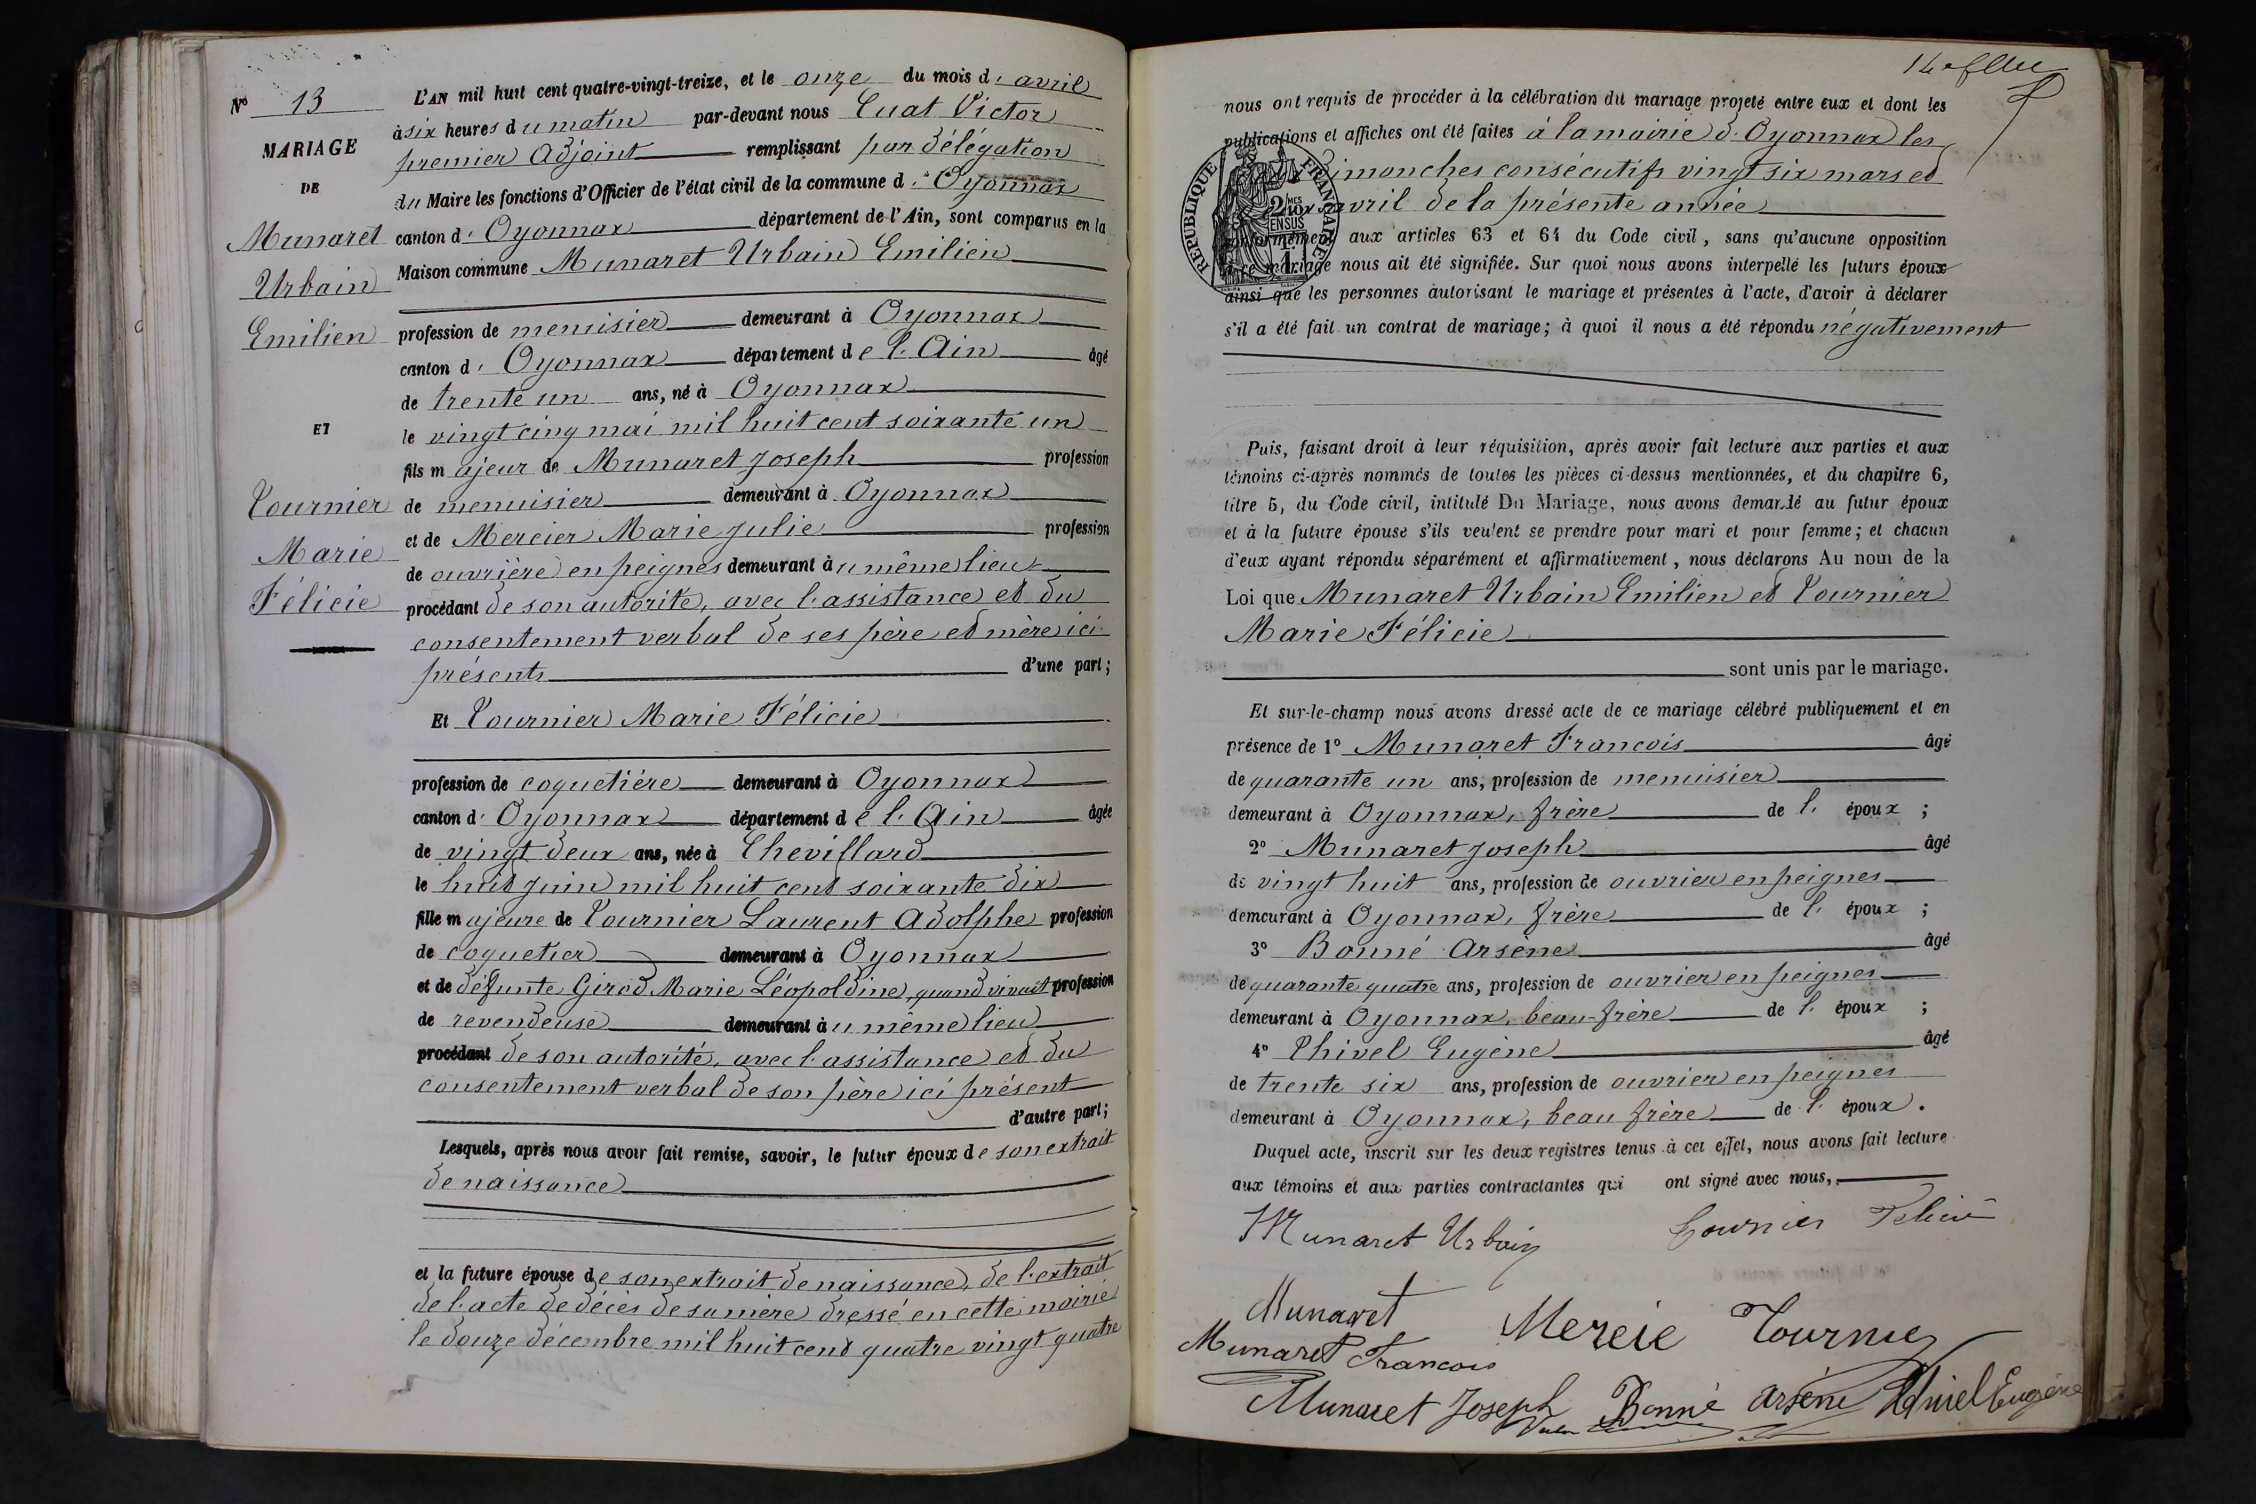 N° 13
MARIAGE
DE
Munaret
Urbain
Emilien
ET
Tournier
Marie
Félicie
L'AN mil huit cent quatre-vingt-treize, et le onze du mois d'avril
à six heures du matin par-devant nous Cuat Victor
premier Adjoint remplissant par délégation
du Maire les fonctions d'Officier de l'état civil de la commune d'Oyonnax
canton d'Oyonnax département de l'Ain, sont comparus en la
Maison commune Munaret Urbain Emilien
profession de menuisier demeurant à Oyonnax
canton d'Oyonnax département de l'Ain âgé
de trente un ans, né à Oyonnax
le vingt cinq mai mil huit cent soixante un
fils majeur de Munaret Joseph profession
de menuisier demeurant à Oyonnax
et de Mercier Marie Julie profession
de ouvrière en peignes demeurant au même lieu
procédant de son autorité, avec l'assistance et du
consentement verbal de ses père et mère ici
présents d'une part;
Et Tournier Marie Félicie
profession de coquetière demeurant à Oyonnax
canton d'Oyonnax département de l'Ain âgée
de vingt deux ans, née à Chevillard
le huit juin mil huit cent soixante dix
fille majeure de Tournier Laurent Adolphe profession
de coquetier demeurant à Oyonnax
et de défunte Girod Marie Léopoldine, quand vivait profession
de revendeuse demeurant au même lieu
procédant de son autorité, avec l'assistance et du
consentement verbal de son père ici présent
d'autre part;
Lesquels, après nous avoir fait remise, savoir, le futur époux de son extrait
de naissance
et la future épouse de son extrait de naissance, de l'extrait
de l'acte de décès de sa mère dressé en cette mairie
le douze décembre mil huit cent quatre vingt quatre
nous ont requis de procéder à la célébration du mariage projeté entre eux et dont les
publications et affiches ont été faites à la mairie d'Oyonnax les
dimanches consécutifs vingt six mars et
avril de la présente année
conformément aux articles 63 et 64 du Code civil, sans qu'aucune opposition
à ce mariage nous ait été signifiée. Sur quoi nous avons interpellé les futurs époux
ainsi que les personnes autorisant le mariage et présentes à l'acte, d'avoir à déclarer
s'il a été fait un contrat de mariage; à quoi il nous a été répondu négativement
REPUBLIQUE FRANCAISE
Puis, faisant droit à leur réquisition, après avoir fait lecture aux parties et aux
témoins ci-après nommés de toutes les pièces ci-dessus mentionnées, et du chapitre 6,
titre 5, du Code civil, intitulé Du Mariage, nous avons demandé au futur époux
et à la future épouse s'ils veulent se prendre pour mari et pour femme; et chacun
d'eux ayant répondu séparément et affirmativement, nous déclarons Au nom de la
Loi que Munaret Urbain Emilien et Tournier
Marie Félicie
sont unis par le mariage.
Et sur-le-champ nous avons dressé acte de ce mariage célébré publiquement et en
présence de 1° Munaret Francois âgé
de quarante un ans, profession de menuisier
demeurant à Oyonnax, frère de l'époux ;
2° Munaret Joseph âgé
de vingt huit ans, profession de ouvrier en peignes
demeurant à Oyonnax, frère de l'époux ;
3° Bonné Arsène âgé
de quarante quatre ans, profession de ouvrier en peignes
demeurant à Oyonnax, beau-frère de l'époux ;
4° Thivel Eugène âgé
de trente six ans, profession de ouvrier en peignes
demeurant à Oyonnax, beau frère de l'époux.
Duquel acte, inscrit sur les deux registres tenus à cet effet, nous avons fait lecture
aux témoins et aux parties contractantes qui ont signé avec nous,
Munaret Urbain Tournier Félicie
Munaret Mercie Tournier
Munaret Francois
Munaret Joseph Bonné Arsène Thivel Eugène